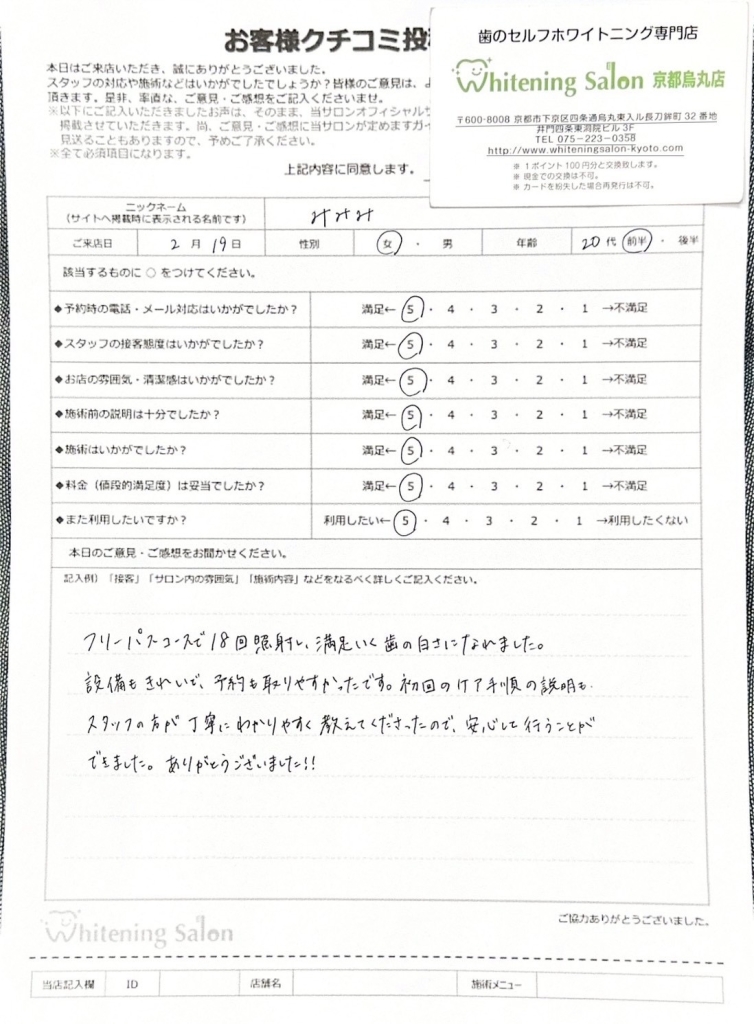 お客様クチコミ投
本日はご来店いただき、誠にありがとうございました。
スタッフの対応や施術などはいかがでしたでしょうか？皆様のご意見は、よ
頂きます。是非、率直な、ご意見・ご感想をご記入くださいませ。
※以下にご記入いただきましたお声は、そのまま、当サロンオフィシャルサ
掲載させていただきます。尚、ご意見・ご感想に当サロンが定めますガイ
見送ることもありますので、予めご了承ください。
※全て必須項目になります。
上記内容に同意します。
歯のセルフホワイトニング専門店
Whitening Salon 京都烏丸店
〒600-8008 京都市下京区四条通烏丸東入ル長刀鉾町 32 番地
井門四条東洞院ビル 3F
TEL 075-223-0358
http://www.whiteningsalon-kyoto.com
※ 1ポイント100円分と交換致します。
※ 現金での交換は不可。
※ カードを紛失した場合再発行は不可。
ニックネーム
（サイトへ掲載時に表示される名前です） みみみ
ご来店日 2 月 19 日 性別 女 ・ 男 年齢 20 代 前半 ・ 後半
該当するものに ○ をつけてください。
◆予約時の電話・メール対応はいかがでしたか？ 満足← 5 ・ 4 ・ 3 ・ 2 ・ 1 →不満足
◆スタッフの接客態度はいかがでしたか？ 満足← 5 ・ 4 ・ 3 ・ 2 ・ 1 →不満足
◆お店の雰囲気・清潔感はいかがでしたか？ 満足← 5 ・ 4 ・ 3 ・ 2 ・ 1 →不満足
◆施術前の説明は十分でしたか？ 満足← 5 ・ 4 ・ 3 ・ 2 ・ 1 →不満足
◆施術はいかがでしたか？ 満足← 5 ・ 4 ・ 3 ・ 2 ・ 1 →不満足
◆料金（値段的満足度）は妥当でしたか？ 満足← 5 ・ 4 ・ 3 ・ 2 ・ 1 →不満足
◆また利用したいですか？ 利用したい← 5 ・ 4 ・ 3 ・ 2 ・ 1 →利用したくない
本日のご意見・ご感想をお聞かせください。
記入例）「接客」「サロン内の雰囲気」「施術内容」などをなるべく詳しくご記入ください。
フリーパスコースで18回照射し、満足いく歯の白さになれました。
設備もきれいで、予約も取りやすかったです。初回のケア手順の説明も
スタッフの方が丁寧にわかりやすく教えてくださったので、安心して行うことが
できました。ありがとうございました!!
ご協力ありがとうございました。
Whitening Salon
当店記入欄 ID 店舗名 施術メニュー